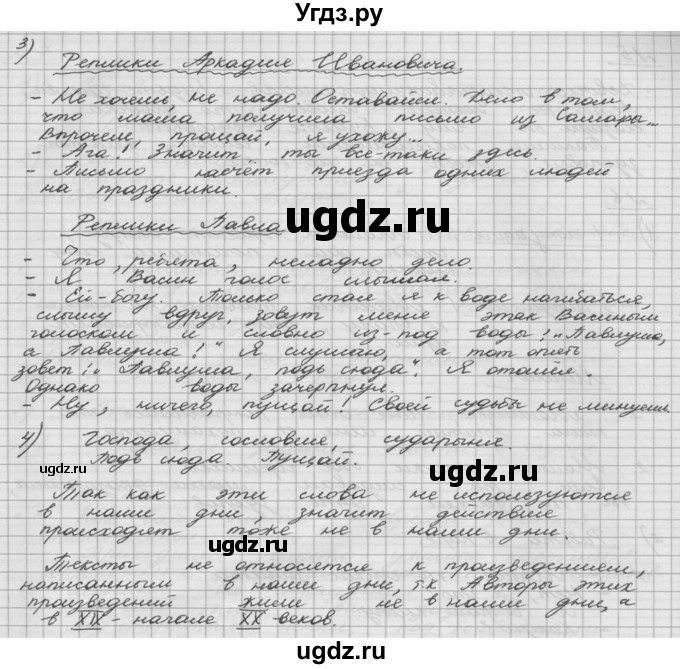 Угдз.ру
3)
Реплики Аркадия Ивановича.
- Не хочешь, не надо. Оставайся. Дело в том,
что мама получила письмо из Самары...
Впрочем, прощай, я ухожу...
- Ага! Значит, ты всё-таки здесь.
- Письмо насчёт приезда одних людей
на праздники.
Реплики Павла
ugdz.ru
- Что, ребята, неладно дело.
- Я Васин голос слышал.
- Ей-богу. Только стал я к воде нагибаться,
слышу вдруг, зовут меня этак Васиным
голоском и словно из-под воды: "Павлуша,
а Павлуша!" Я слушаю, а тот опять
зовет: "Павлуша, подь сюда". Я отошел.
Однако воды зачерпнул.
- Ну, ничего, пущай! Своей судьбы не минуешь
4) Господа, сословие, сударыня.
Подь сюда. Пущай.
ugdz.ru
ugdz.ru
Так как эти слова не используются
в наши дни, значит действие
происходят тоже не в наши дни.
ugdz.ru
Тексты не относятся к произведениям,
написанными в наши дни, т.к Авторы этих
произведений жили не в наши дни, а
в XIX - начале XX веков.
ugdz.ru